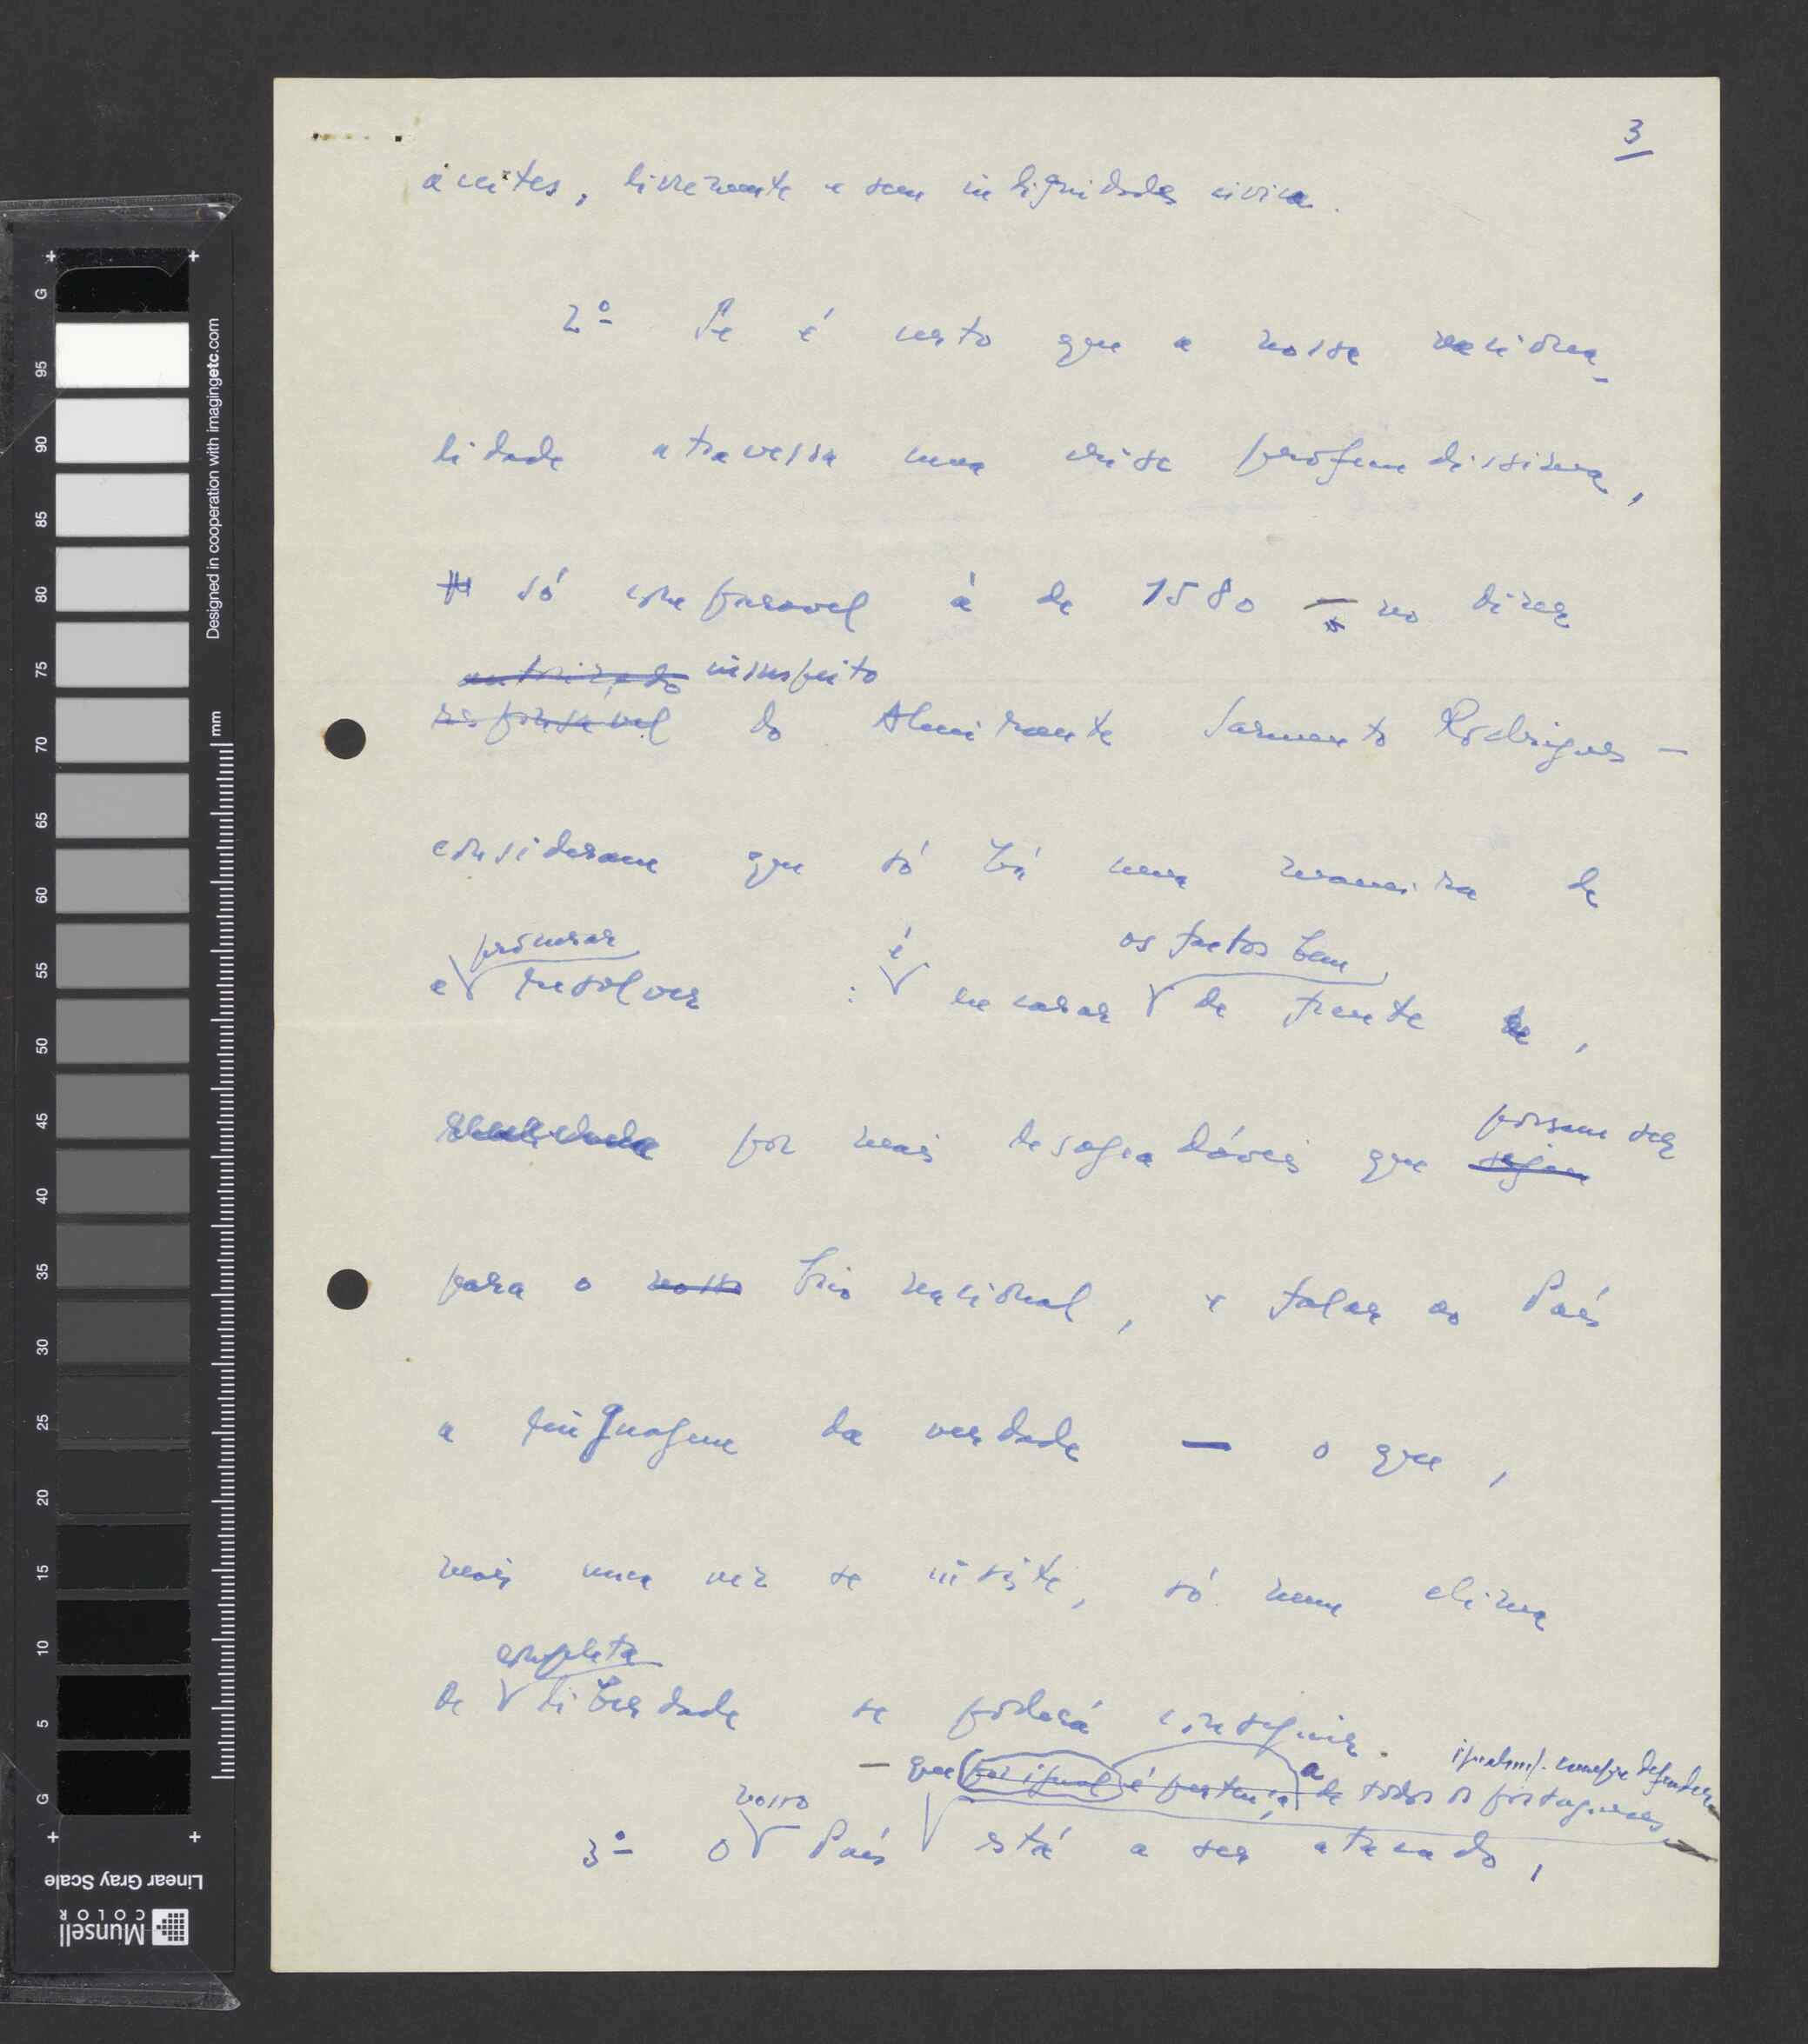 3
aceites, livremente e sem indignidades civica.
2º Se é certo que a nossa naciona-
lidade atravessa uma crise profundissima,
só comparavel à de 1580 — no dizer
autorizado insuspeito
responsável do Almirante Sarmento Rodrigues —
consideram que só há uma maneira de
procurar é os factos bem
a resolver : encarar de frente de ,
por mais desagradáveis que possam ser
sejam
para o nosso brio nacional, e falar ao País
a linguagem da verdade — o que,
mais uma vez se insiste, só num clima
completa
de liberdade se poderá conseguir.
igualm/. compre defender
— que por igual é pertença a de todos os portugueses —
nosso
3º O País está a ser atacado,
G
95
90
85
80
75
70
65
60
55
50
45
40
35
30
25
20
15
10
5
G
mm
Designed in cooperation with imagingetc.com
Linear Gray Scale
Munsell
COLOR